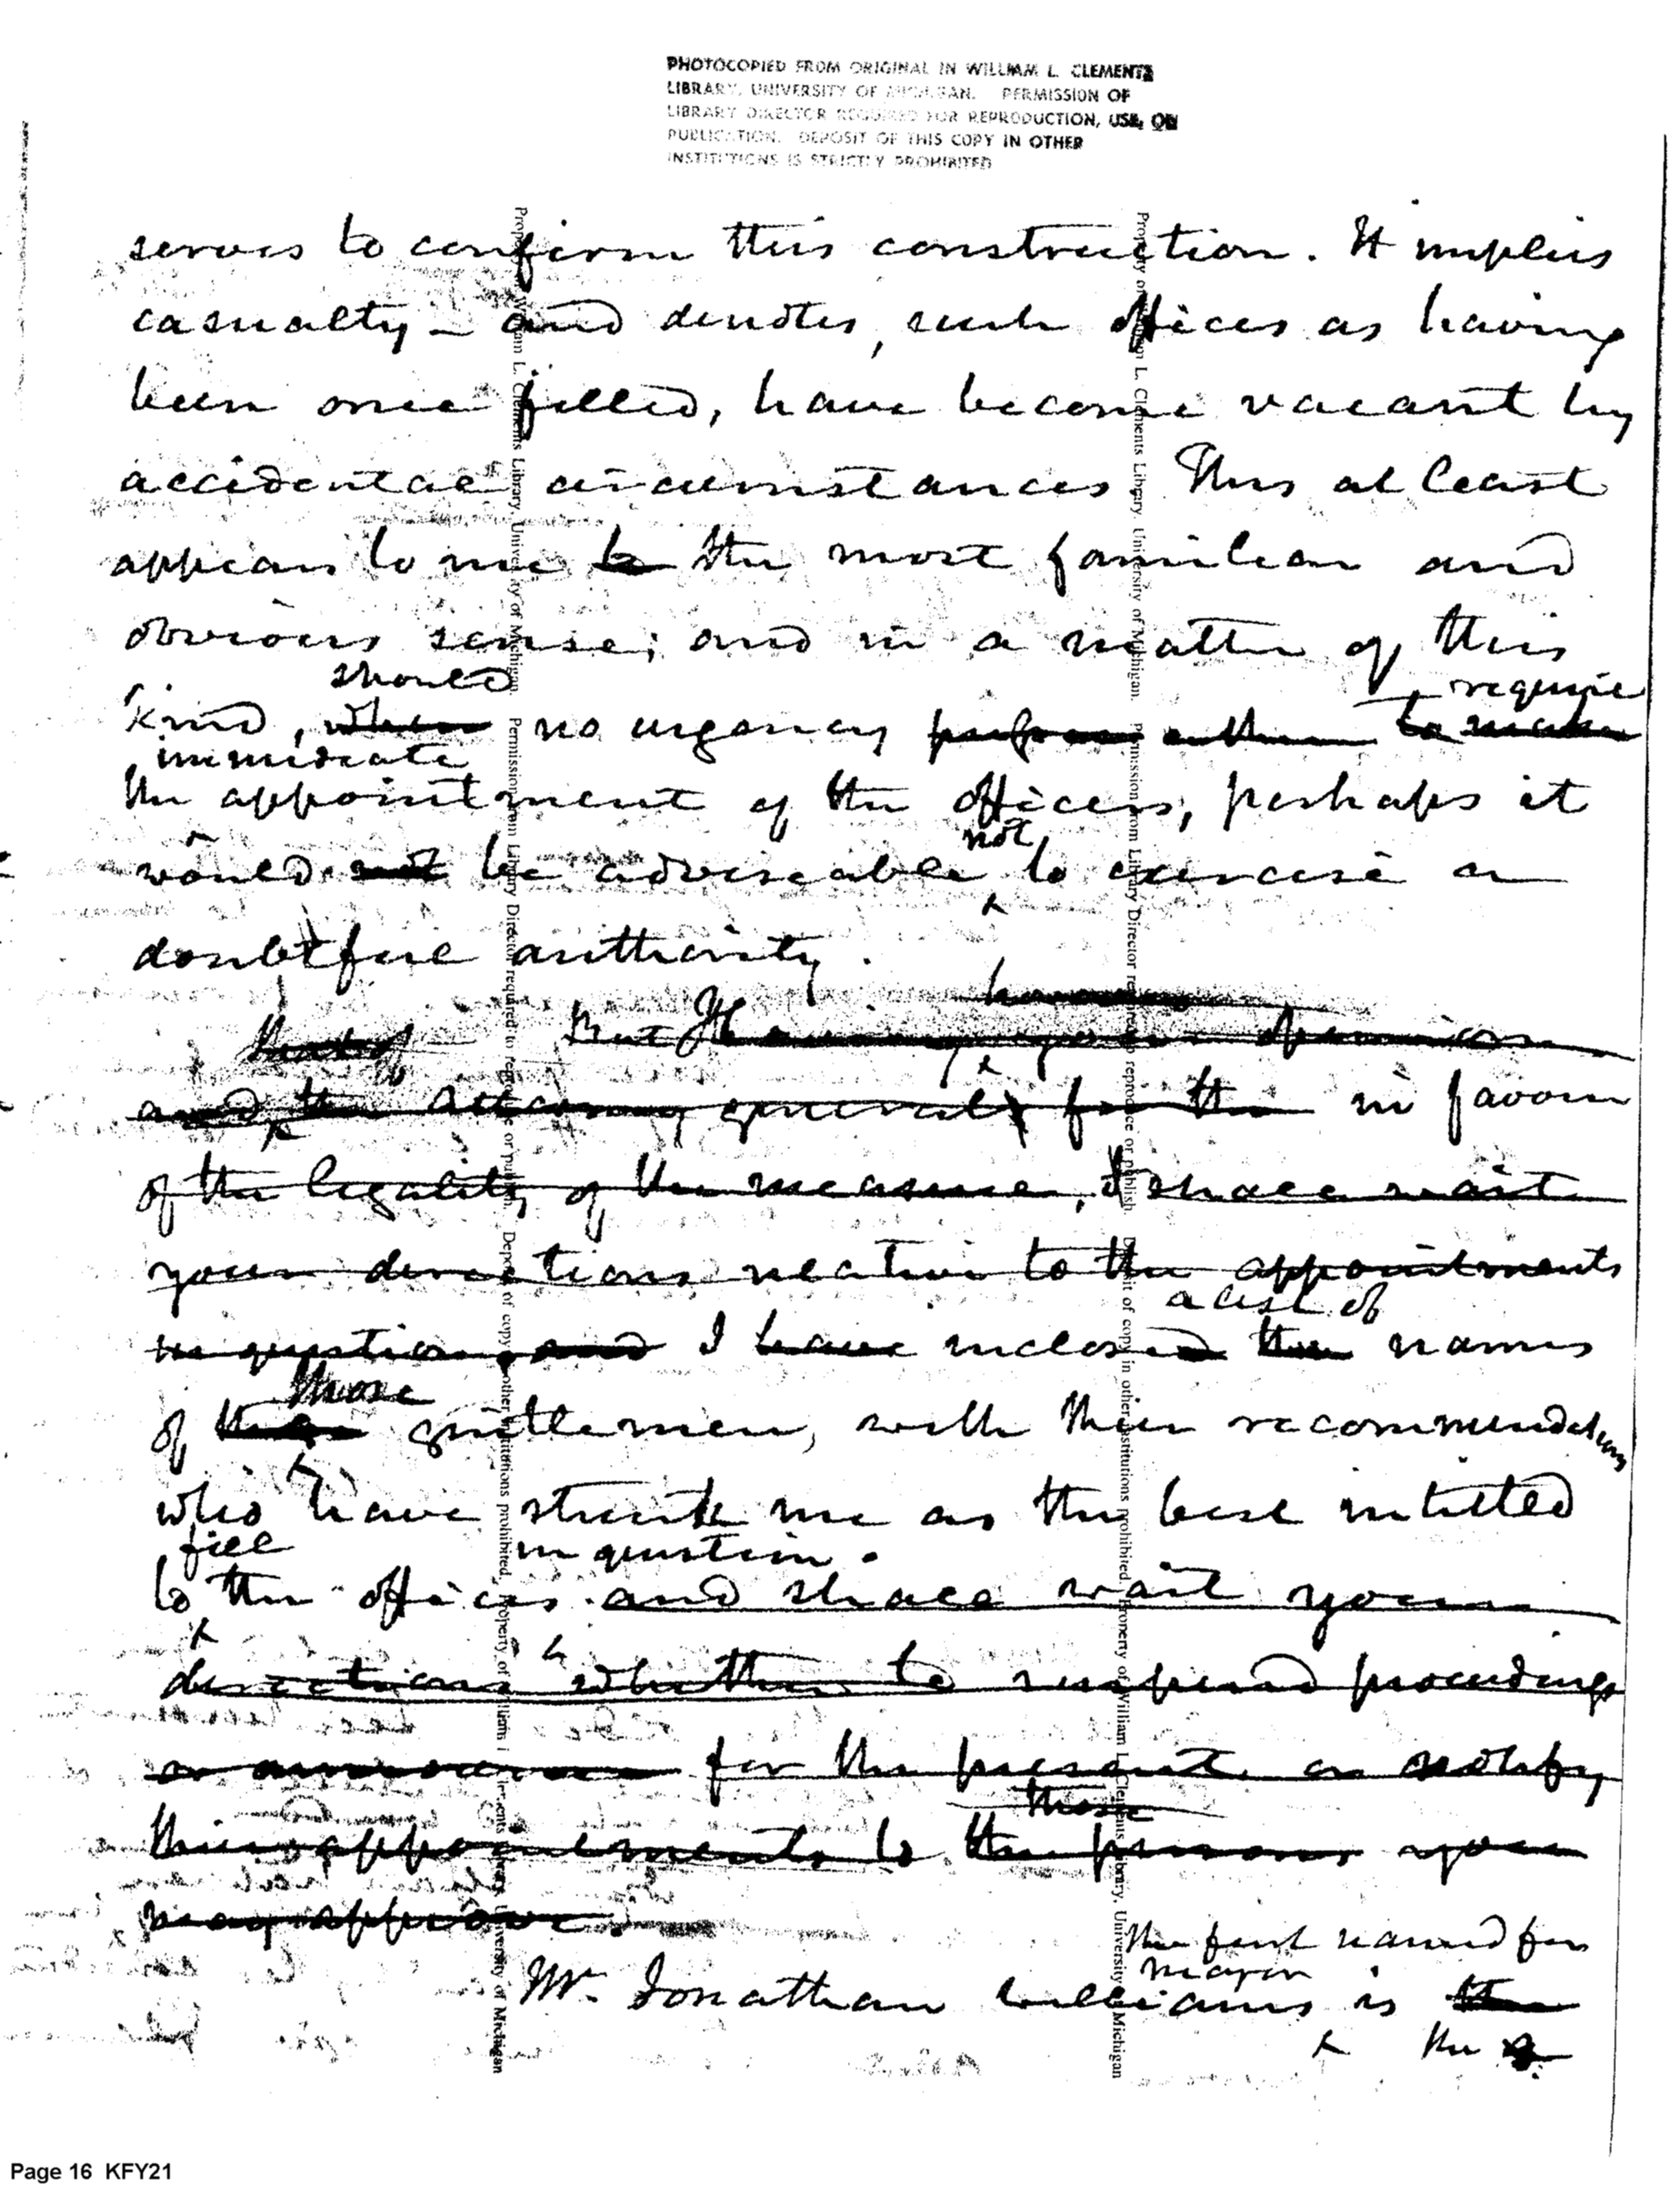 PHOTOCOPIED FROM ORIGINAL IN WILLIAM L. CLEMENTS
LIBRARY, UNIVERSITY OF MICHIGAN. PERMISSION OF
LIBRARY DIRECTOR REQUIRED FOR REPRODUCTION, USE, OR
PUBLICATION. DEPOSIT OF THIS COPY IN OTHER
INSTITUTIONS IS STRICTLY PROHIBITED
serves to confirm this construction. It implies
casualty – and denotes, such offices as having
been once filled, have become vacant by
accidental circumstances This at least
appears to me to the most familiar and
obvious sense; and in a matter of this
should
require
kind, when no urgency to make
immediate
the appointment of the officers, perhaps it
not
would not be adviseable to exercise a
doubtful authority.
But
and the attorney general for the in favour
of the legality of the measure, I shall wait
your directions relative to the appointments
a list of
in question and I have inclosed the names
those
of gentlemen, with their recommendations
who have struck me as the best intitled
fill in question.
to the offices and shall wait your
directions whether to suspend proceedings
or announce for the present or notify
those
their appointments to the persons you
may approve.
the first named for
major
Mr. Jonathan Williams is the
the
Property of William L. Clements Library, University of Michigan. Permission from Library Director required to reproduce or publish. Deposit of copy in other institutions prohibited. Property of William L. Clements Library, University of Michigan
Property of William L. Clements Library, University of Michigan. Permission from Library Director required to reproduce or publish. Deposit of copy in other institutions prohibited. Property of William L. Clements Library, University of Michigan
Page 16 KFY21